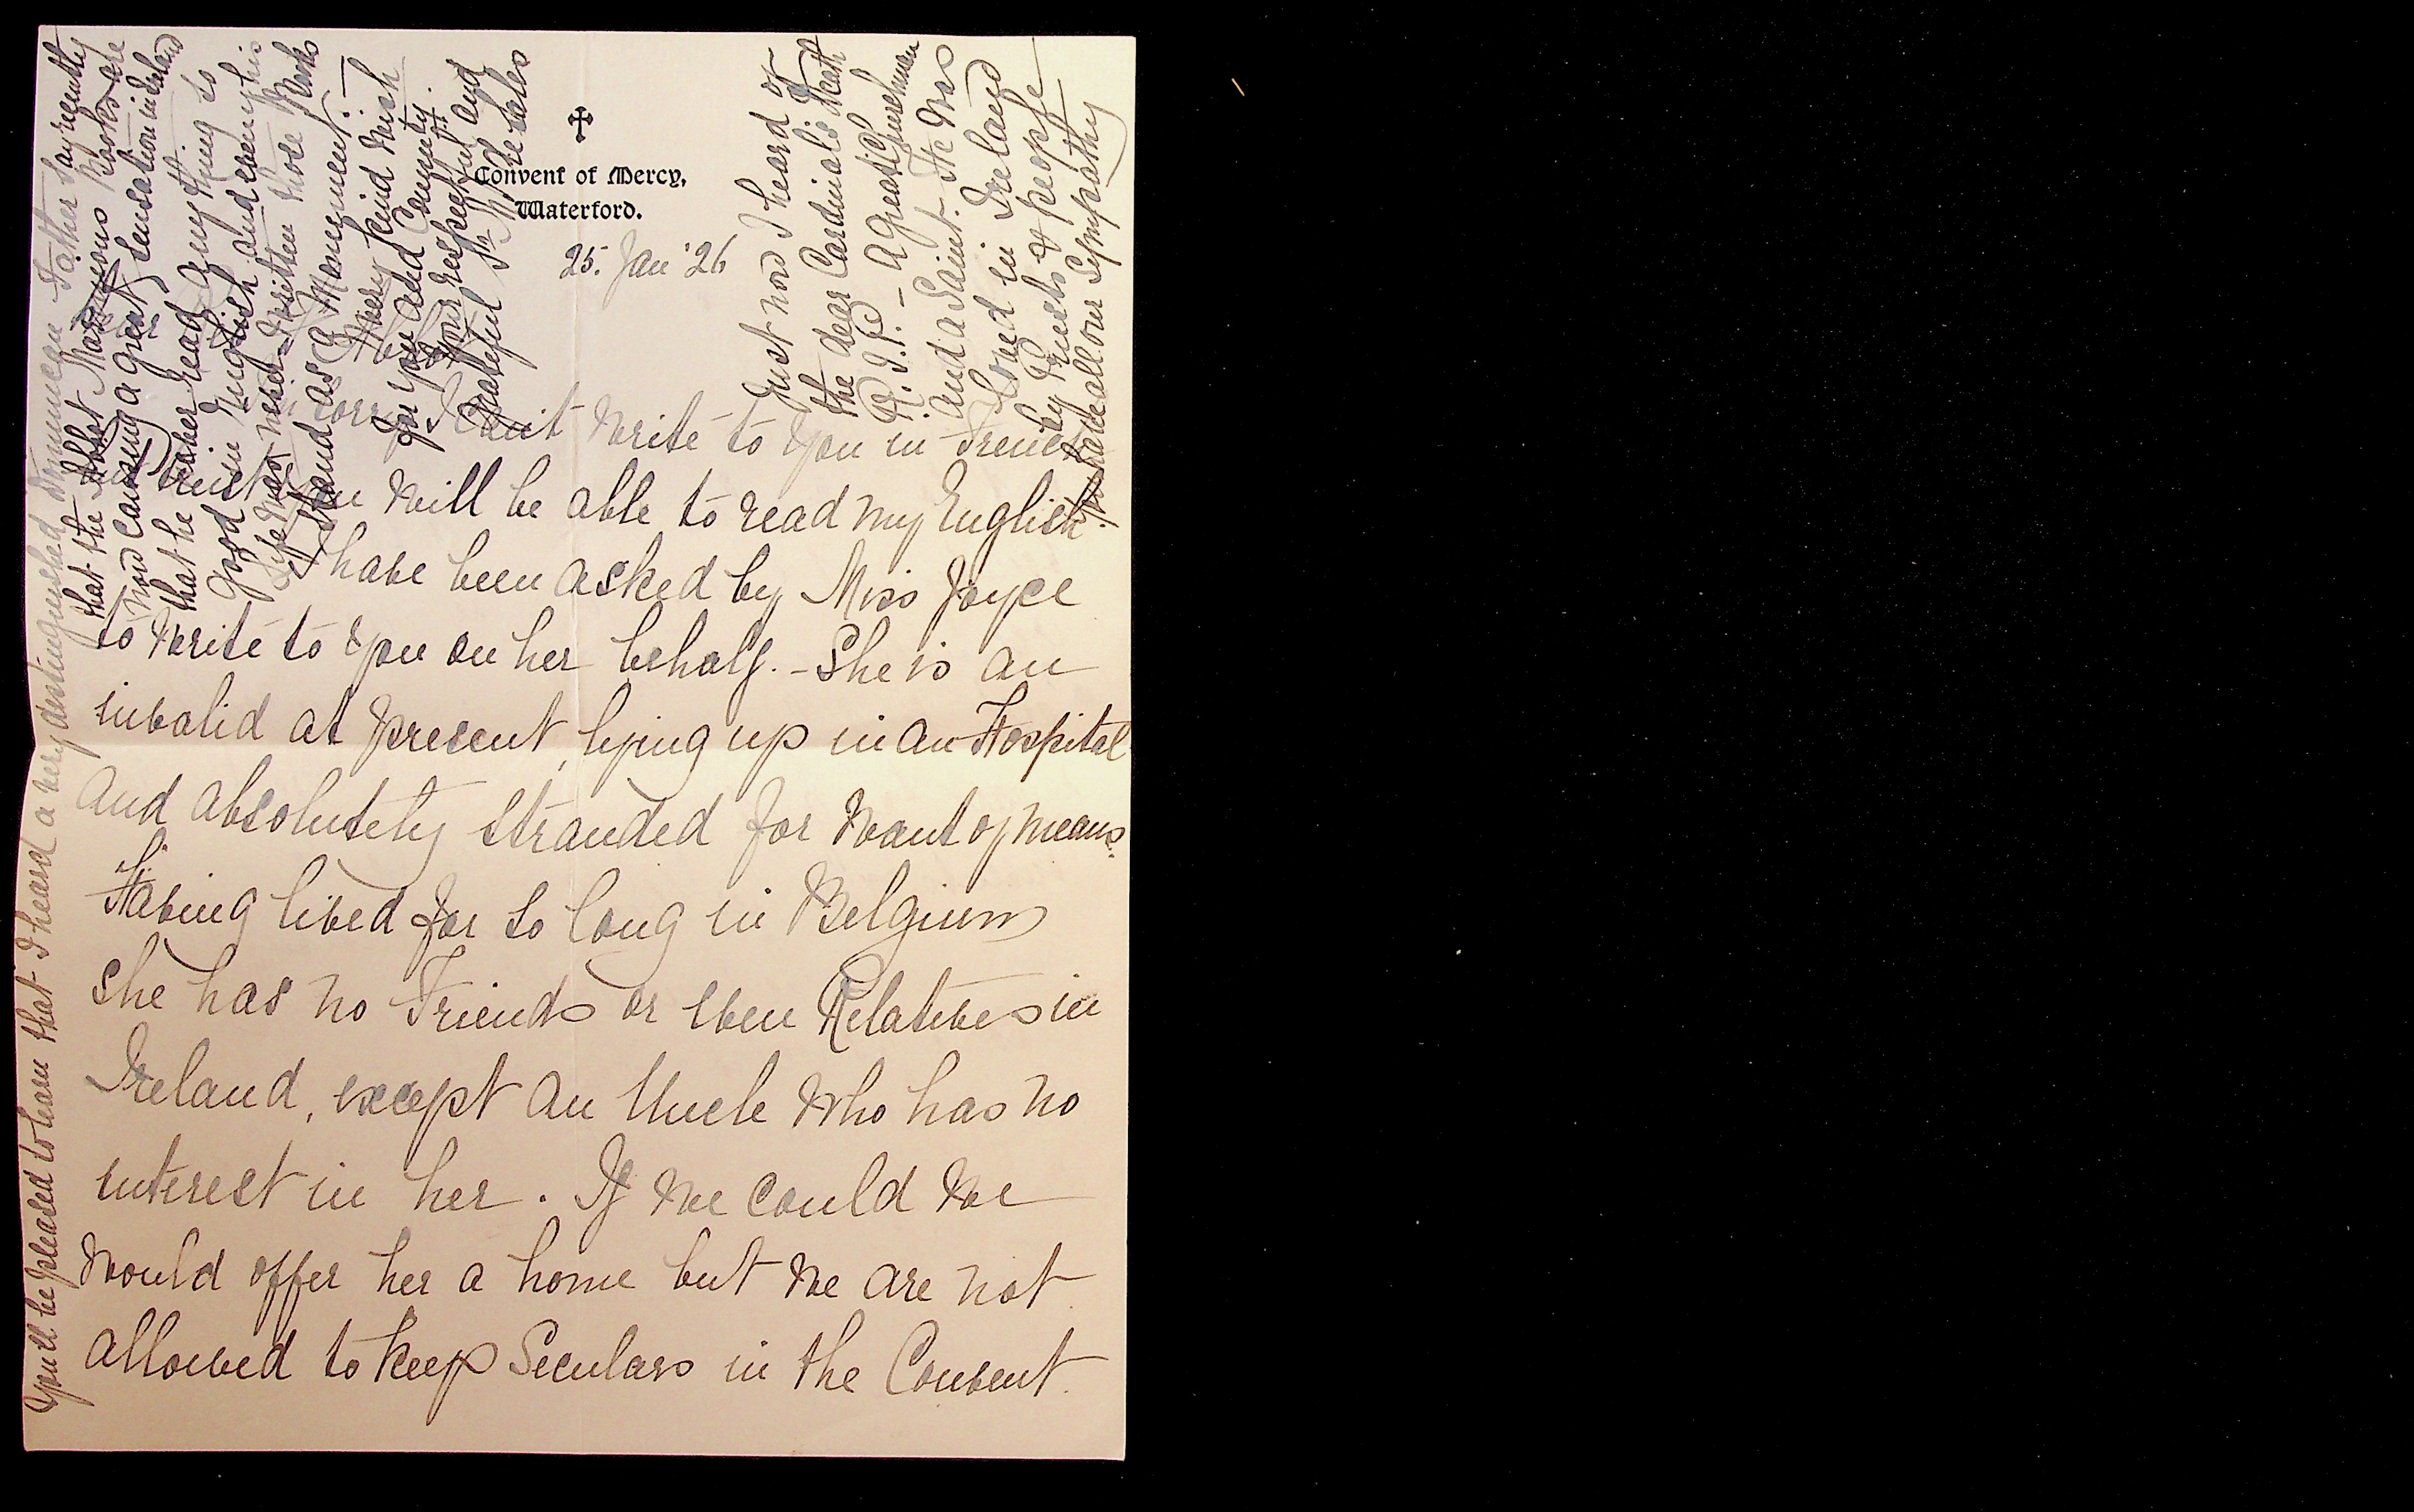 Convent of Mercy,
Waterford.
25. Jan '26
sorry I can't write to you in French
I trust you will be able to read my English.
I have been asked by Miss Joyce
to write to you on her behalf. - She is an
invalid at present, lying up in an Hospital
and absolutely stranded for want of means.
Having lived for so long in Belgium
she has no Friends or even Relatives in
Ireland, except an Uncle who has no
interest in her. If we could we
would offer her a home but we are not
allowed to keep Seculars in the Convent.
You'll be pleased to learn that I heard a very distinguished Dominican Father say recently
that the Abbot Marmion's Books are
now causing a great sensation in Ireland
that he never read anything so
good in English and even if his
life was not written those Books
stand as a Monument. -
With every kind wish
for you and Community.
Your respectful and
grateful Sr. M. de Sales
Just now I heard of
the dear Cardinal's death
R.I.P. - A great Churchman
and a Saint. He was
loved in Ireland
by Priests & people
You have all our Sympathy